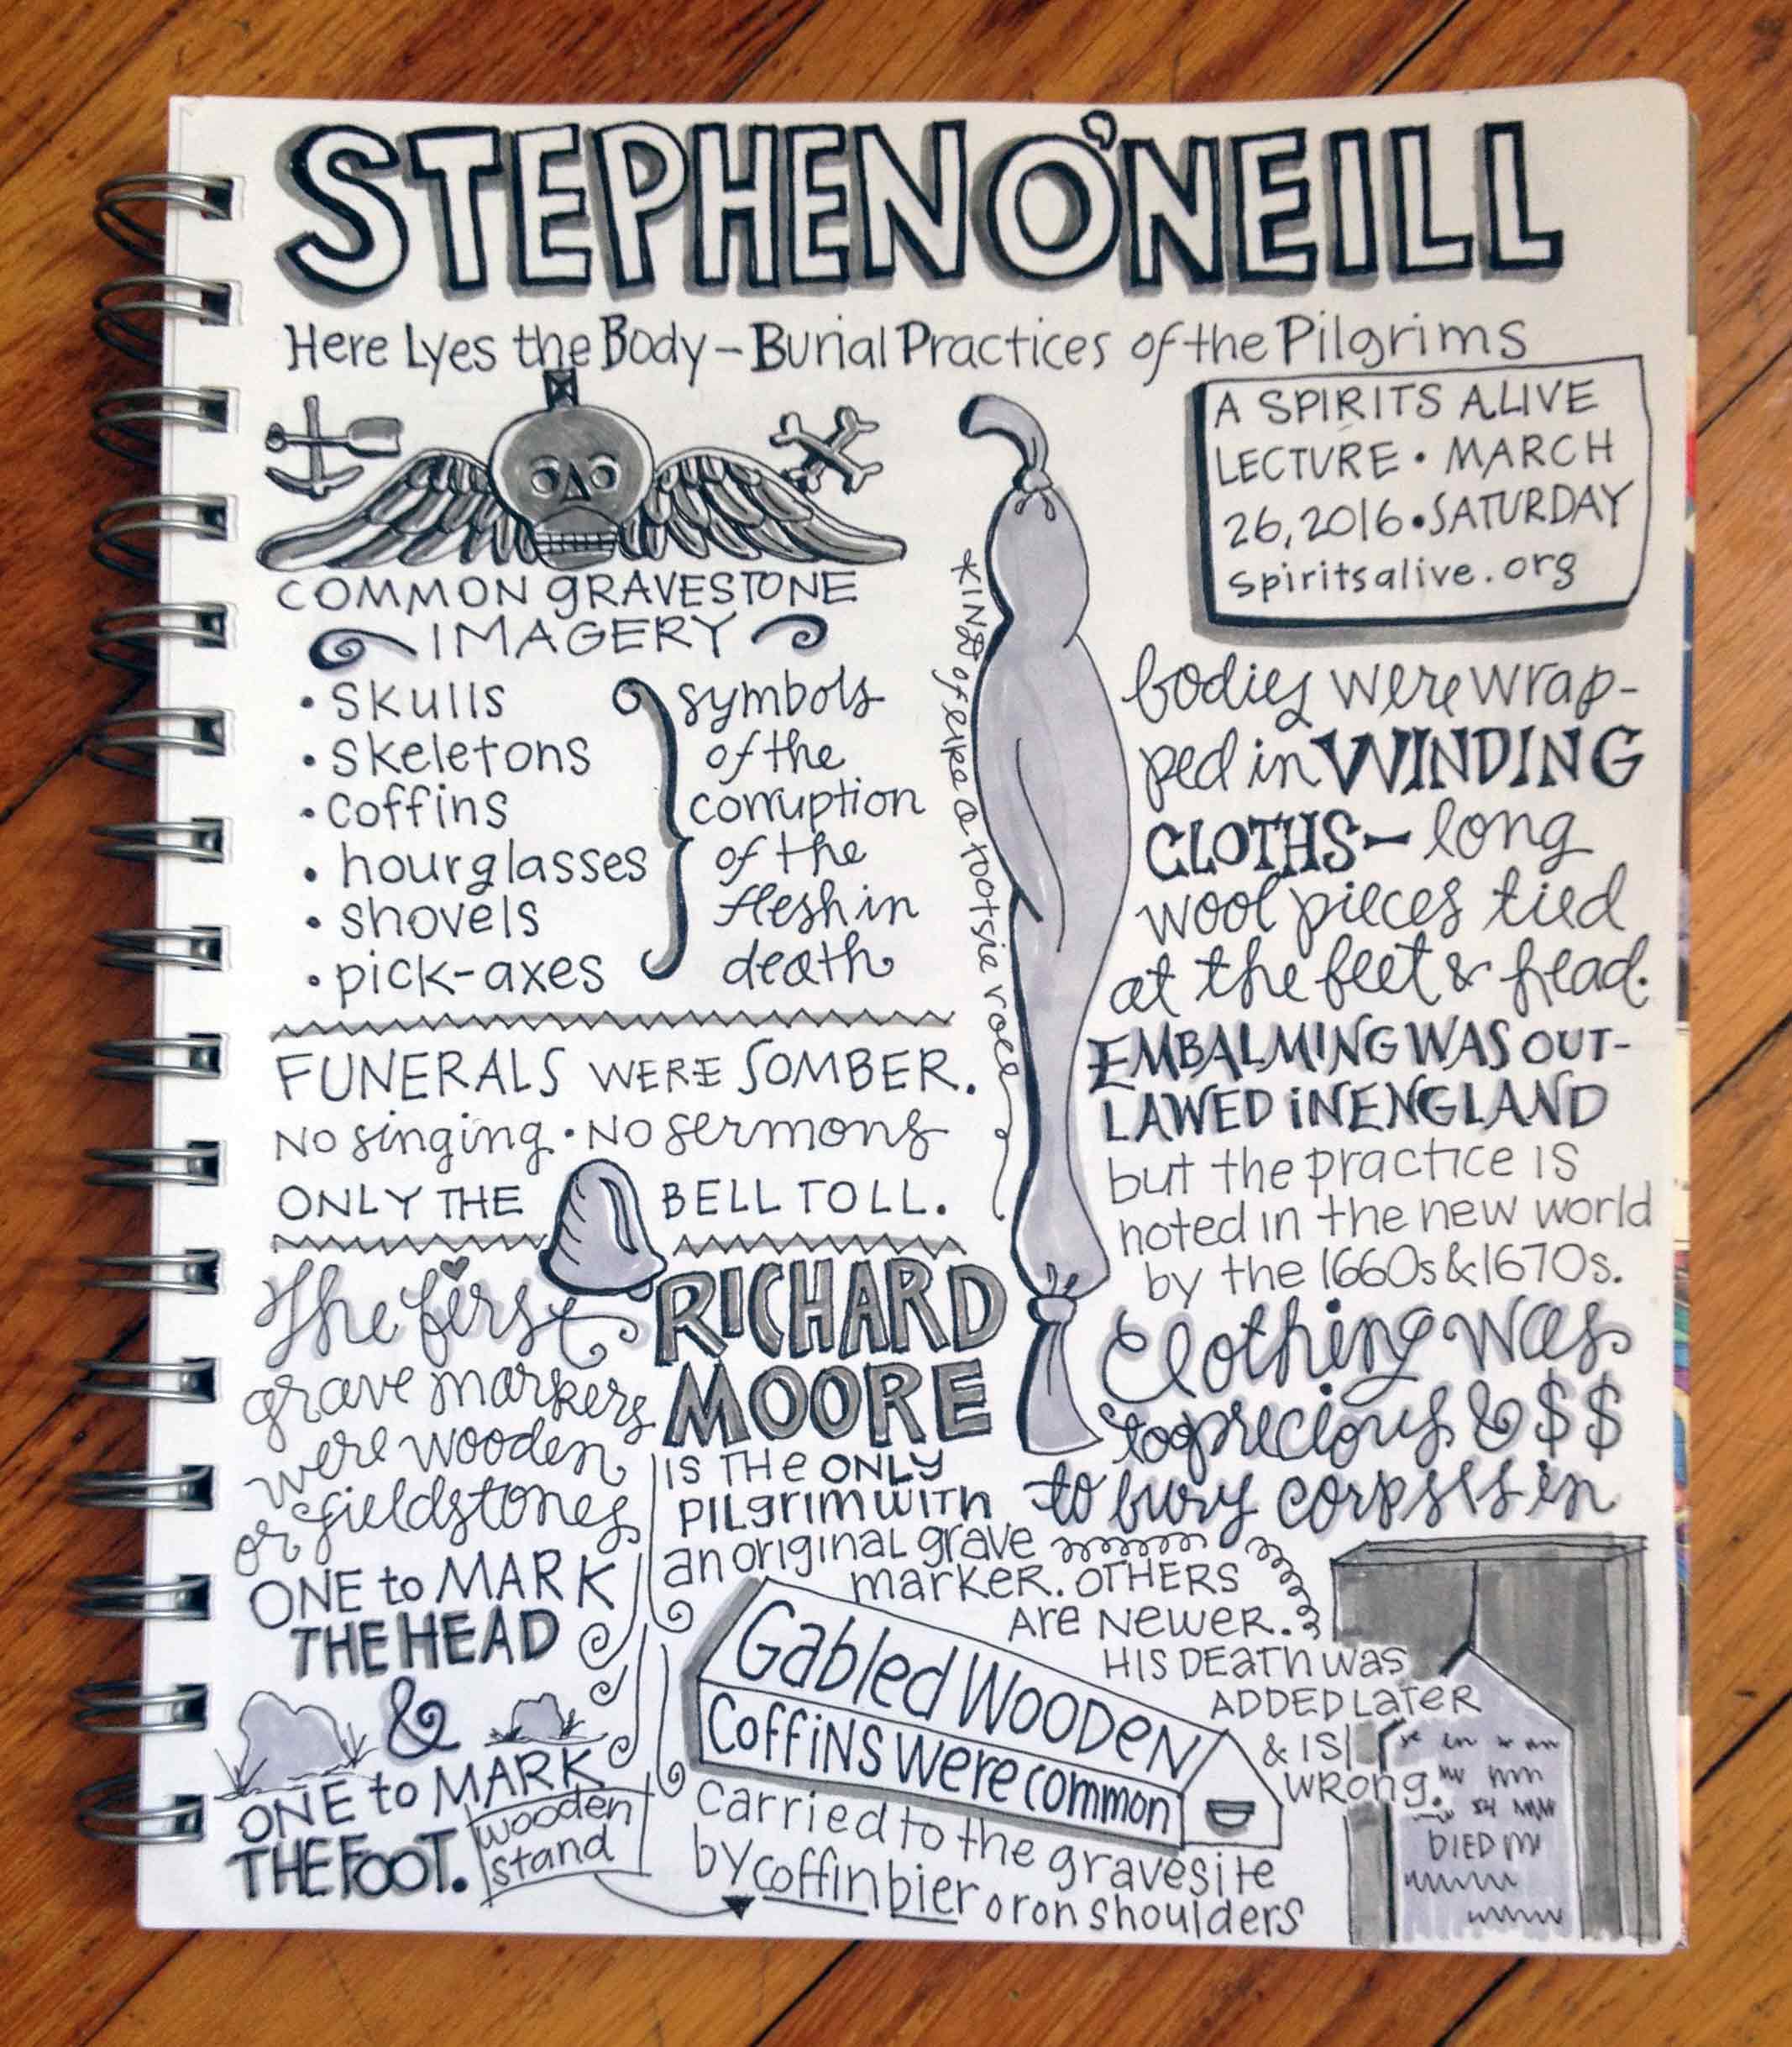 STEPHEN O'NEILL
Here Lyes the Body – Burial Practices of the Pilgrims
A SPIRITS ALIVE
LECTURE • MARCH
26, 2016 • SATURDAY
spiritsalive.org
COMMON GRAVESTONE
IMAGERY
• skulls
• skeletons
• coffins
• hourglasses
• shovels
• pick-axes
symbols
of the
corruption
of the
flesh in
death
*KIND of like a tootsie roll
bodies were wrap-
ped in WINDING
CLOTHS – long
wool pieces tied
at the feet & head.
EMBALMING WAS OUT-
LAWED IN ENGLAND
but the practice is
noted in the new world
by the 1660s & 1670s.
Clothing was
too precious & $$
to bury corpses in
FUNERALS WERE SOMBER.
NO singing • NO sermons
ONLY THE BELL TOLL.
The first
grave markers
were wooden
or fieldstones
ONE to MARK
THE HEAD
&
ONE to MARK
THE FOOT.
RICHARD
MOORE
IS THE ONLY
PILgrim WITH
an original grave
marker. OTHERS
Are Newer.
HIS DEATH WAS
ADDED LATER
& IS
WRONG.
DIED
Gabled WOODEN
COFFINS Were common
carried to the gravesite
by coffin bier or on shoulders
wooden
stand